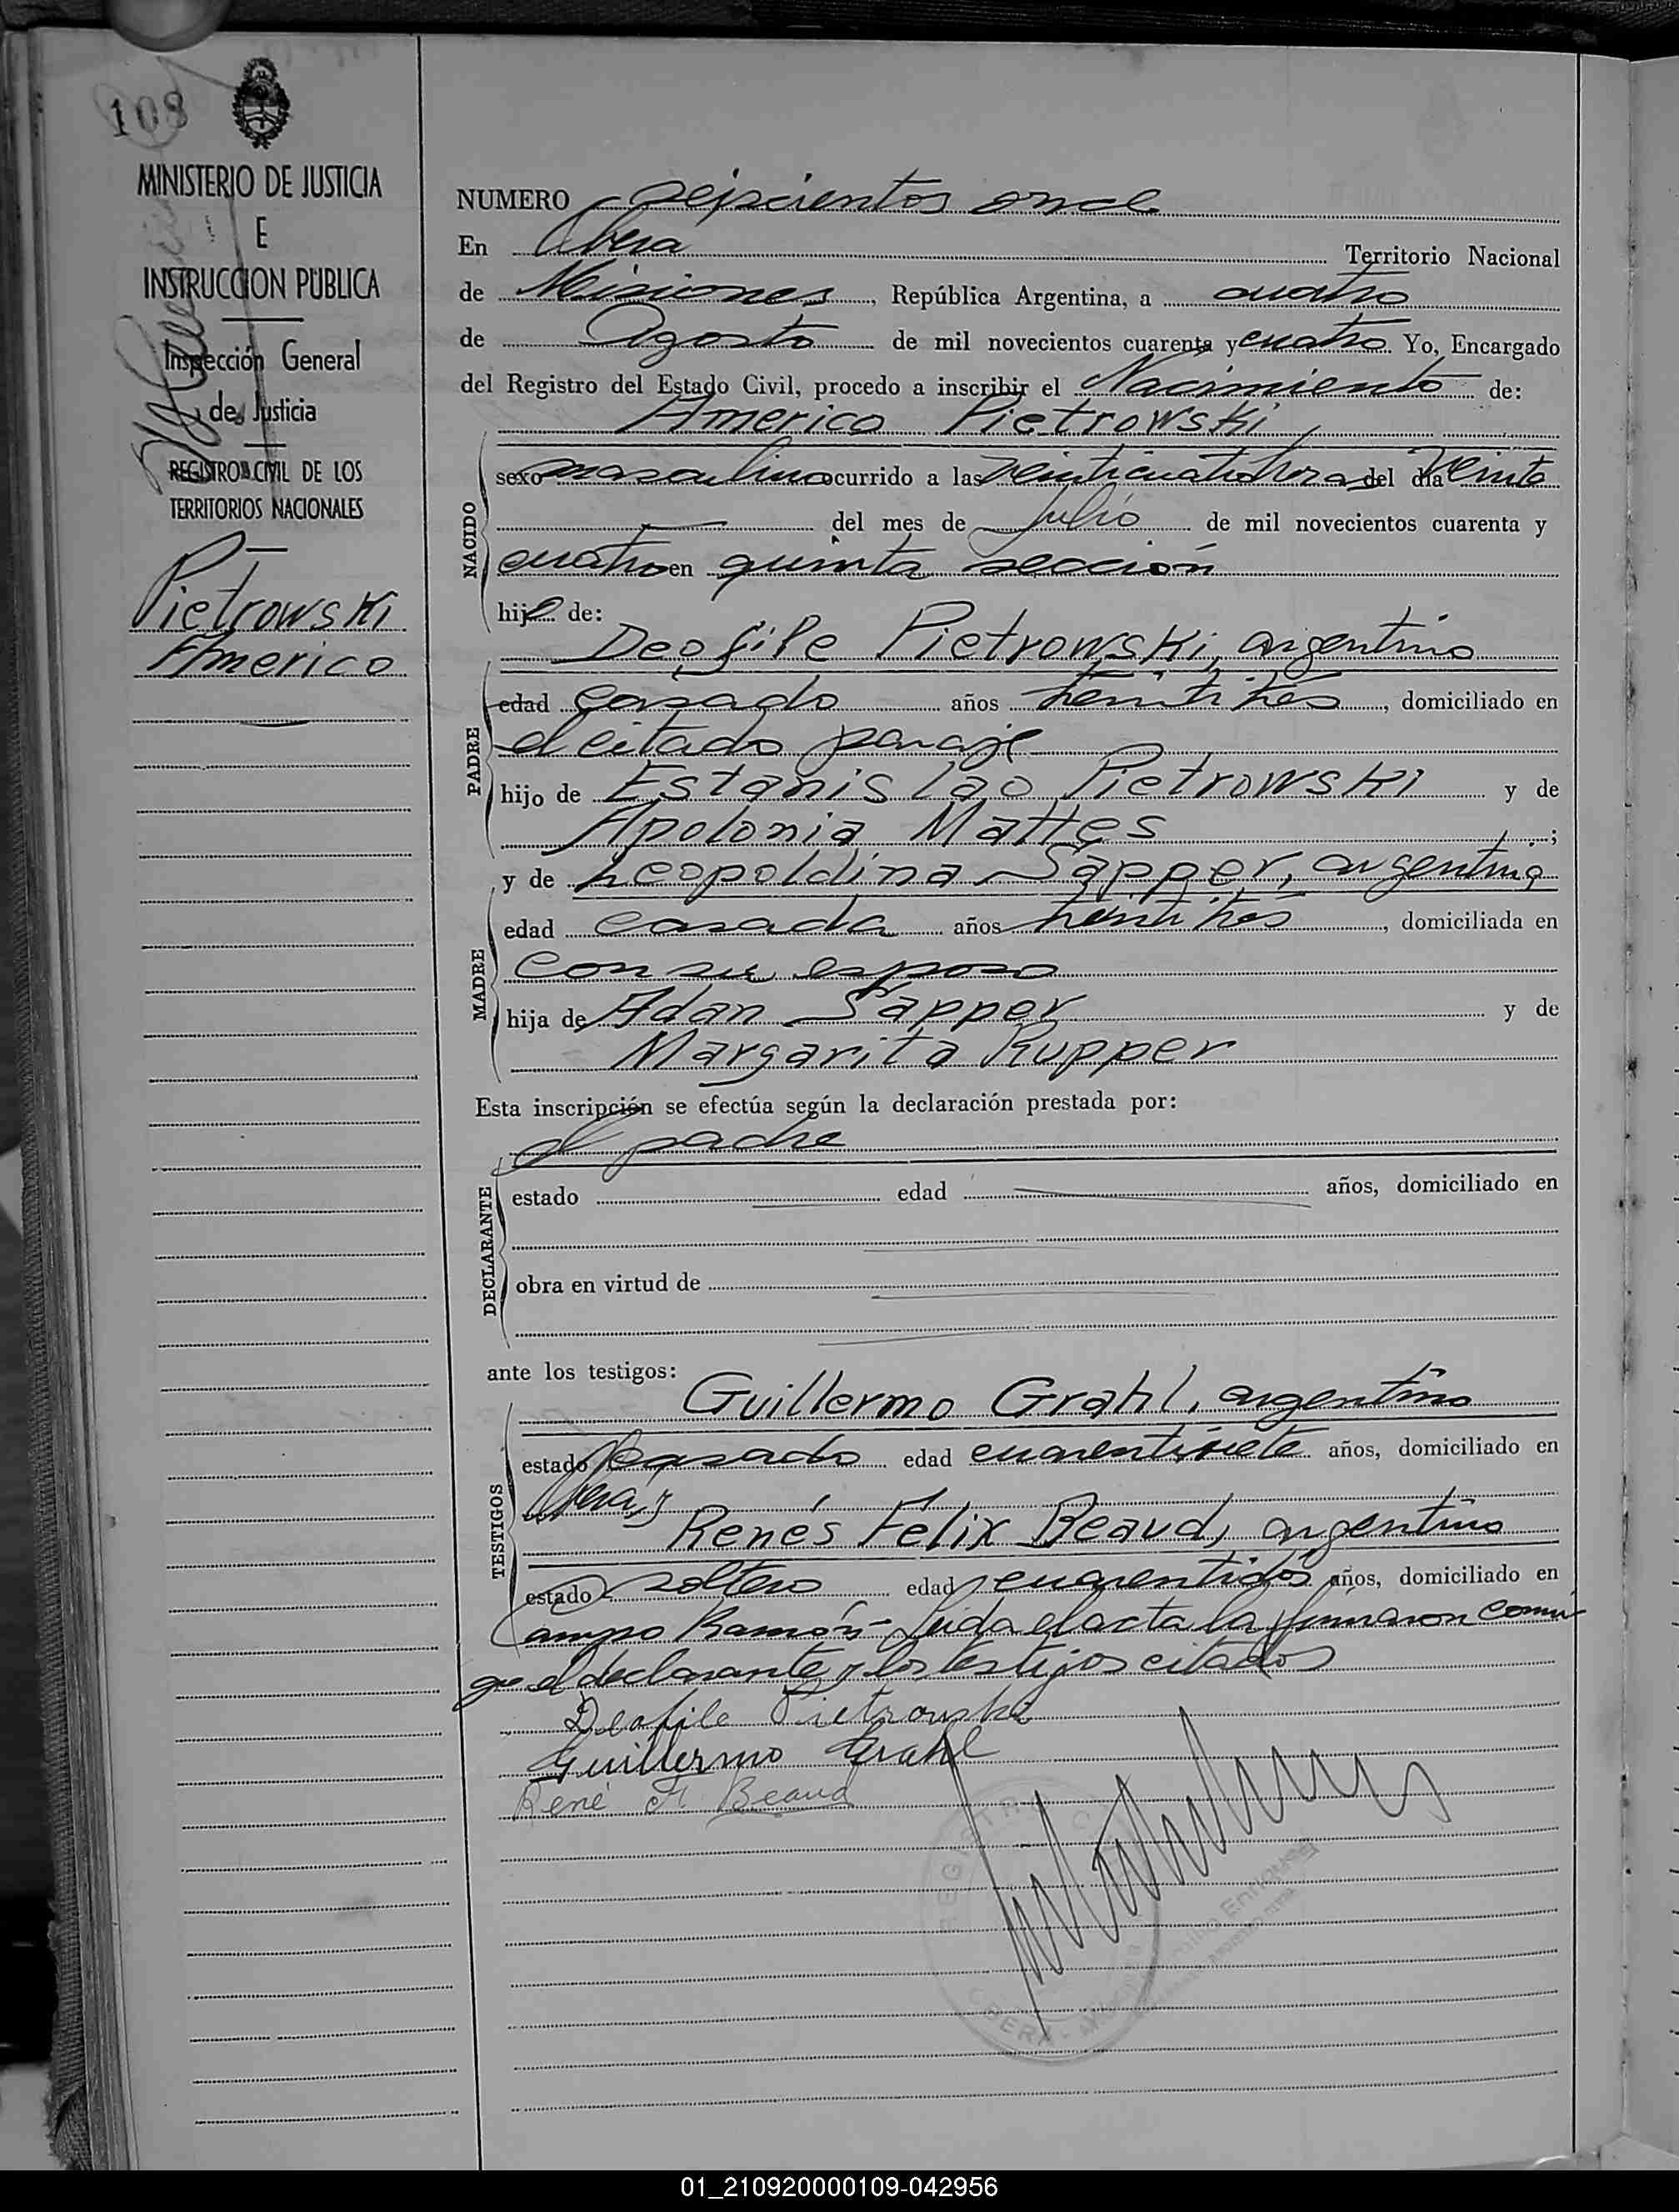 108
MINISTERIO DE JUSTICIA
E
INSTRUCCION PUBLICA
Inspección General
de Justicia
REGISTRO CIVIL DE LOS
TERRITORIOS NACIONALES
Pietrowski
Americo
NUMERO seiscientos once
En Obera Territorio Nacional
de Misiones, República Argentina, a cuatro
de Agosto de mil novecientos cuarenta y cuatro Yo, Encargado
del Registro del Estado Civil, procedo a inscribir el Nacimiento de:
Americo Pietrowski,
NACIDO
sexo masculino ocurrido a las veinticuatro horas del día veinte
del mes de Julio de mil novecientos cuarenta y
cuatro en quinta sección
hijo de:
PADRE
Deofile Pietrowski, argentino
edad casado años treinti trés, domiciliado en
el citado paraje
hijo de Estanislao Pietrowski y de
Apolonia Mattes;
MADRE
y de Leopoldina Sapper, argentina
edad casada años treinti trés, domiciliada en
con su esposo
hija de Adan Sapper y de
Margarita Rupper
Esta inscripción se efectúa según la declaración prestada por:
el padre
DECLARANTE
estado edad años, domiciliado en
obra en virtud de
ante los testigos:
TESTIGOS
Guillermo Grahl, argentino
estado casado edad cuarentisiete años, domiciliado en
Obera, y
Renés Félix Beaud, argentino
estado soltero edad cuarentidós años, domiciliado en
Campo Ramón- Leida el acta la firmaron conmi
go el declarante y los testigos citados
Deofile Pietrowski
Guillermo Grahl
René F. Beaud
01_210920000109-042956